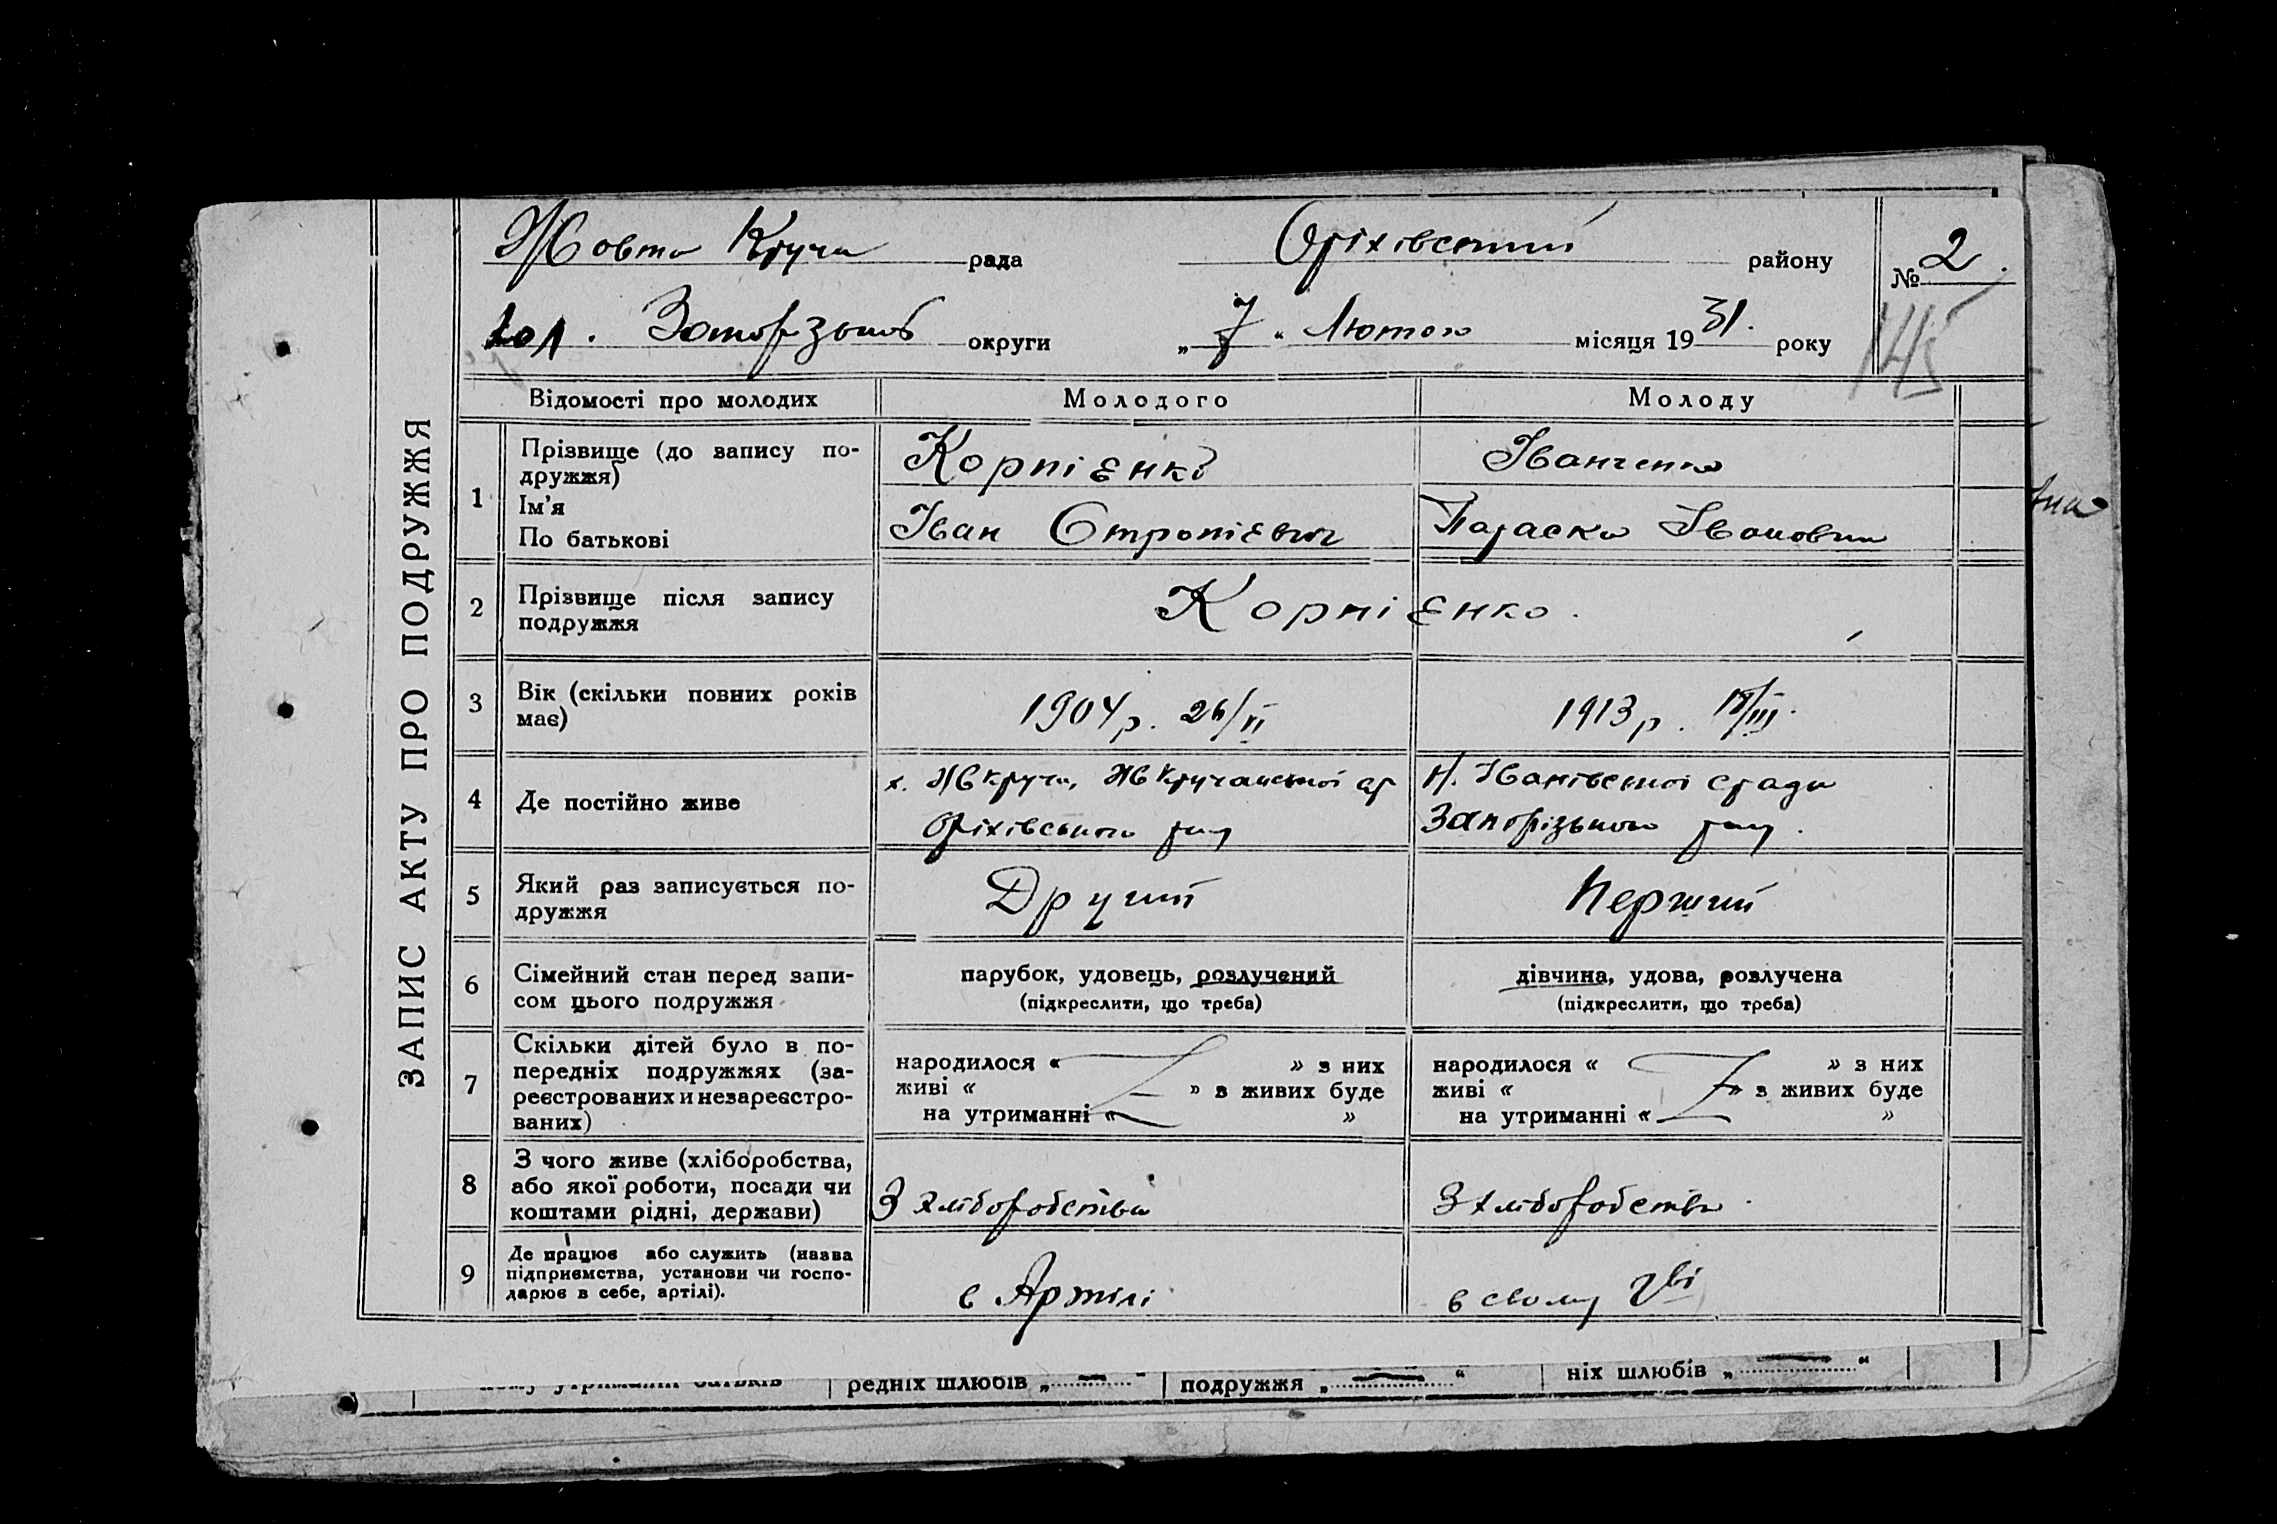 Жовта Круча рада Оріхівський району № 2.
кол. Запорізької округи „7“ Лютого місяця 1931. року
145
ЗАПИС АКТУ ПРО ПОДРУЖЖЯ
Відомості про молодих Молодого Молоду
1 Прізвище (до запису подружжя) Корнієнко Іванченко
Ім'я
По батькові Іван Параска Івановна
2 Прізвище після запису подружжя Корнієнко.
3 Вік (скільки повних років має) 1904 р. 26/VI 1913 р. 18/III.
4 Де постійно живе х. Жв Круча, Жв Кручанської ср Н. Іванівської сради
Оріхівського рну Запорізького рну.
5 Який раз записується подружжя Другий Перший
6 Сімейний стан перед записом цього подружжя парубок, удовець, розлучений дівчина, удова, розлучена
(підкреслити, що треба) (підкреслити, що треба)
7 Скільки дітей було в попередніх подружжях (зареєстрованих и незареєстрованих)
народилося « » з них народилося « » з них
живі « » з живих буде живі « » з живих буде
на утриманні « » на утриманні « »
8 З чого живе (хліборобства, або якої роботи, посади чи коштами рідні, держави) З хліборобства З хліборобства.
9 Де працює або служить (назва підприємства, установи чи господарює в себе, артілі). в Артілі в свому гві
редніх шлюбів „ “ подружжя „ “ ніх шлюбів „ “